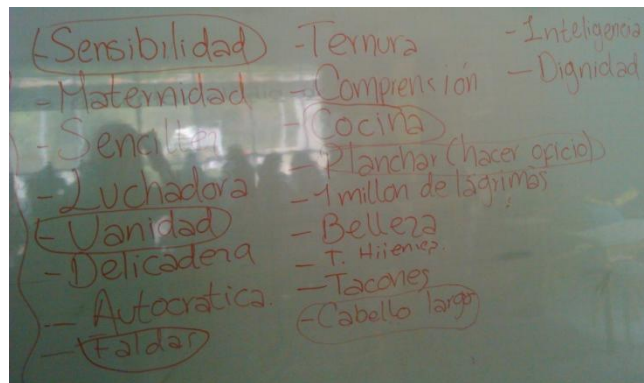 - Sensibilidad
- Maternidad
- Sencillez
- Luchadora
- Vanidad
- Delicadeza
- Autocratica.
- Faldas
- Ternura
- Comprensión
- Cocina
- Planchar (hacer oficio)
- 1 millon de lágrimas
- Belleza
- T.
- Tacones
- Cabello largo
- Inteligencia
- Dignidad